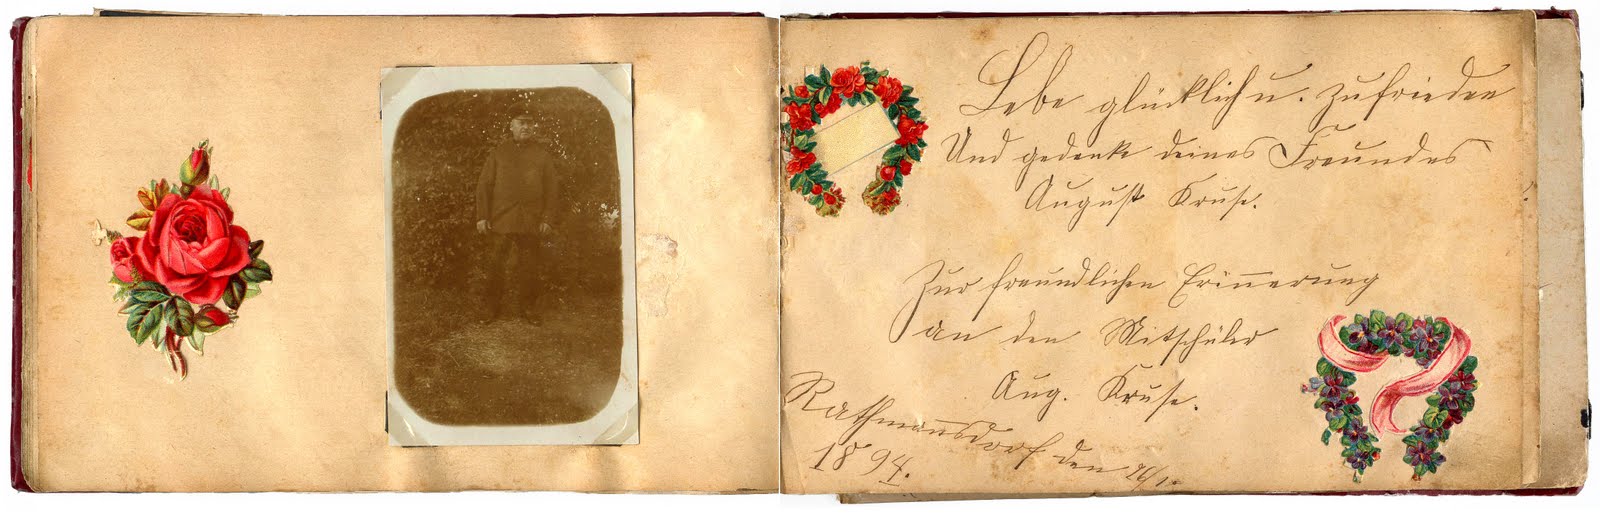 Lebe glücklich u. zufrieden
Und gedenke deines Freundes
August Kruse.
Zur freundlichen Erinnerung
an den Mitschüler
Aug. Kruse.
Rathmannsdorf den
1894.